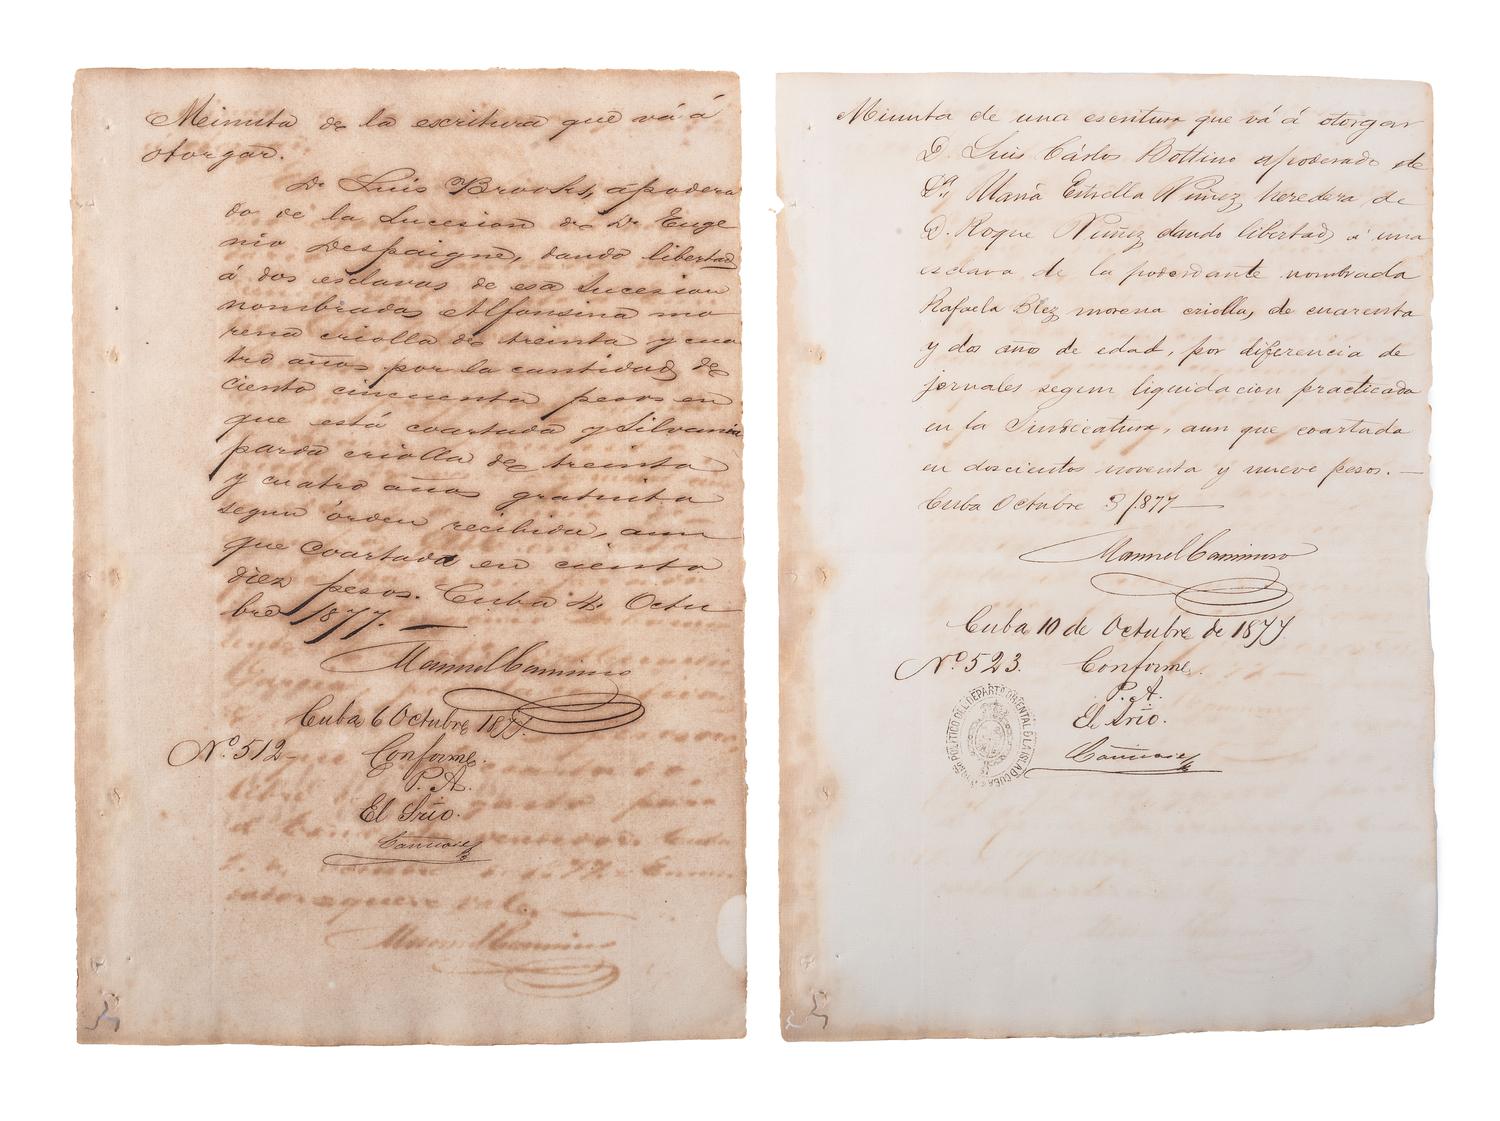 Minuta de la escritura que vá á
otorgar.
D. Luis Brooks, apodera
do de la Sucesion de D. Euge
nio Despaigne, dando libertad
á dos esclavas de esa Sucesion
nombradas Alfonsina mo
rena criolla de treinta y cua
tro años por la cantidad de
ciento cincuenta pesos en
que está coartada y Silvania
parda criolla de treinta
y cuatro años gratuita
segun órden recibida, aun
que coartada en ciento
diez pesos. Cuba 4 Octu
bre 1877.
Manuel Caminero
Cuba 6 Octubre 1877.
Nº 512
Conforme.
P. A.
El Srio.
Minuta de una escritura que vá á otorgar
D. Luis Cárlos Bottino apoderado de
Dª Maria Estrella Nuñez, heredera de
D. Roque Nuñez dando libertad á una
esclava de la poderdante nombrada
Rafaela Blez morena criolla, de cuarenta
y dos años de edad, por diferencia de
jornales segun liquidacion practicada
en la Sindicatura, aun que coartada
en doscientos noventa y nueve pesos.
Cuba Octubre 3/877
Manuel Caminero
Cuba 10 de Octubre de 1877
Nº 523.
Conforme
P. A.
El Srio.
POLITICO DEL DEPARTO ORIENTAL D LA ISLA D CUBA